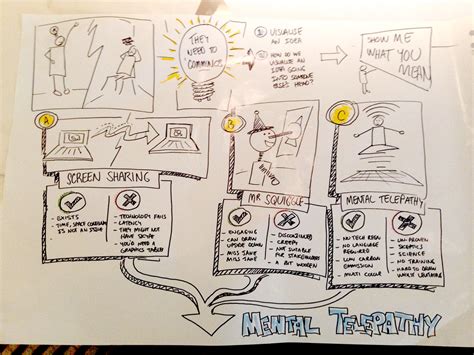 THEY
NEED TO
"COMMUNICATE"
1 VISUALISE
AN IDEA
2 HOW DO WE
VISUALISE AN
IDEA GOING
INTO SOMEONE
ELSE'S HEAD?
SHOW ME
WHAT YOU
MEAN
A
B
C
SCREEN SHARING
- EXISTS
- TIME, SPACE CONTINUUM
IS NOT AN ISSUE
- TECHNOLOGY FAILS
- LATENCY
- THEY MIGHT NOT
HAVE SKYPE
- YOU'D NEED A
GRAPHICS TABLET
MR SQUIGGLE
- ENGAGING
- CAN DRAW
UPSIDE DOWN
- MISS JANE
MISS JANE
- DISCONTINUED
- CREEPY
- NOT SUITABLE
FOR STAKEHOLDERS
- A BIT WOODEN
MENTAL TELEPATHY
- NO TECH REQ'D
- NO LANGUAGE
REQUIRED
- LOW CARBON
EMISSION
- MULTI COLOUR
- UN-PROVEN
- SCEPTICS
- SCIENCE
- NO TRAINING
- HARD TO DRAW
WHILST LEVITATING
MENTAL TELEPATHY